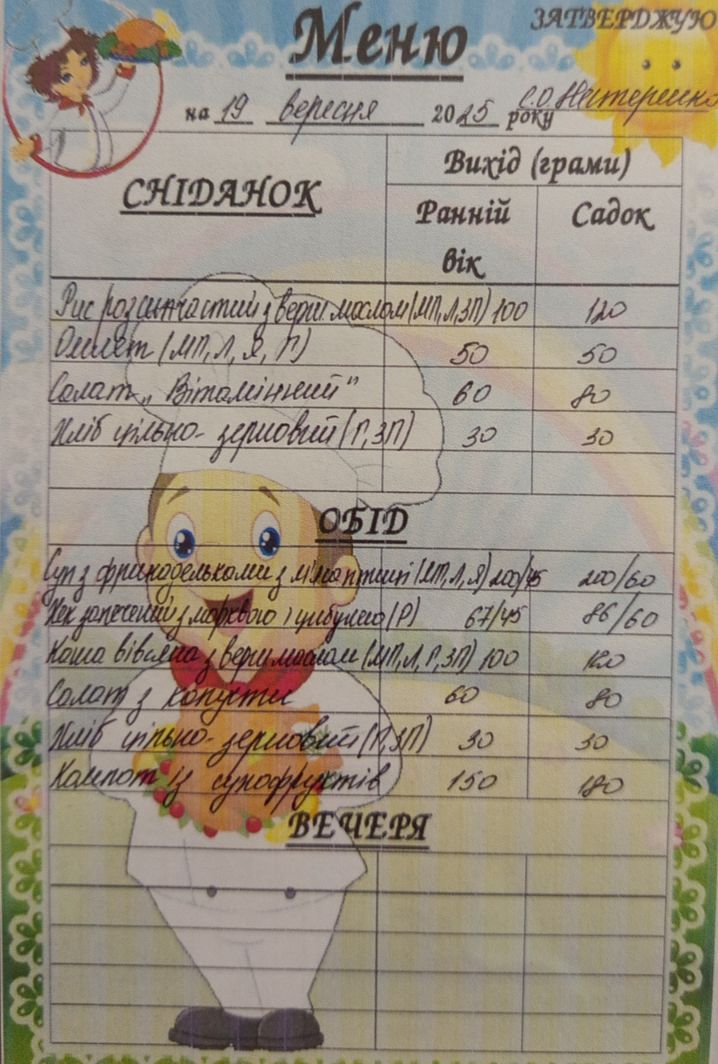 ЗАТВЕРДЖУЮ
Меню
на 19 вересня 2025 року
С.О. Нетеренко
СНІДАНОК
Вихід (грами)
Ранній вік
Садок
Рис розсипчастий з верш. маслом (МП, Л, ЗП) 100 120
Омлет (МП, Л, Я, Г) 50 50
Салат „Вітамінний" 60 80
Хліб цільно-зерновий (Г, ЗП) 30 30
ОБІД
Суп з фрикадельками з м'яса птиці (МП, Л, Я) 200/45 200/60
Хек запечений з морквою і цибулею (Р) 67/45 86/60
Каша вівсяна з верш. маслом (МП, Л, Г, ЗП) 100 120
Салат з капусти 60 80
Хліб цільно-зерновий (Г, ЗП) 30 30
Компот із сухофруктів 150 180
ВЕЧЕРЯ